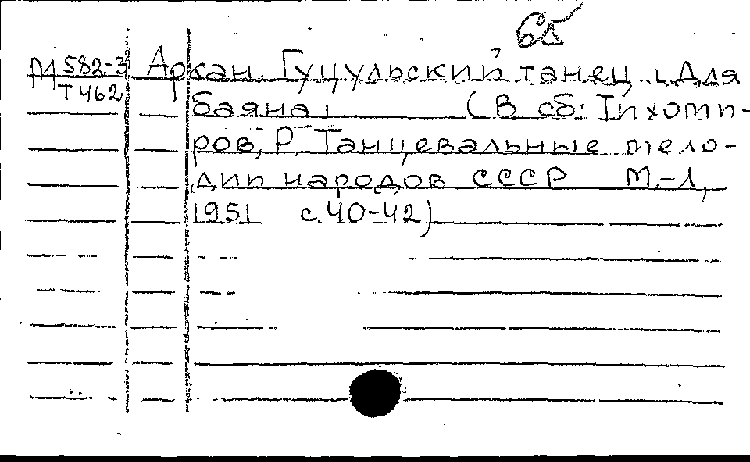 65
М 582-3 Аркан. Гуцульский танец. Для
Т 462 баяна. (В сб: Тихоми-
ров, Р. Танцевальные мело-
дии народов СССР М.-Л,
1951 с.40-42)